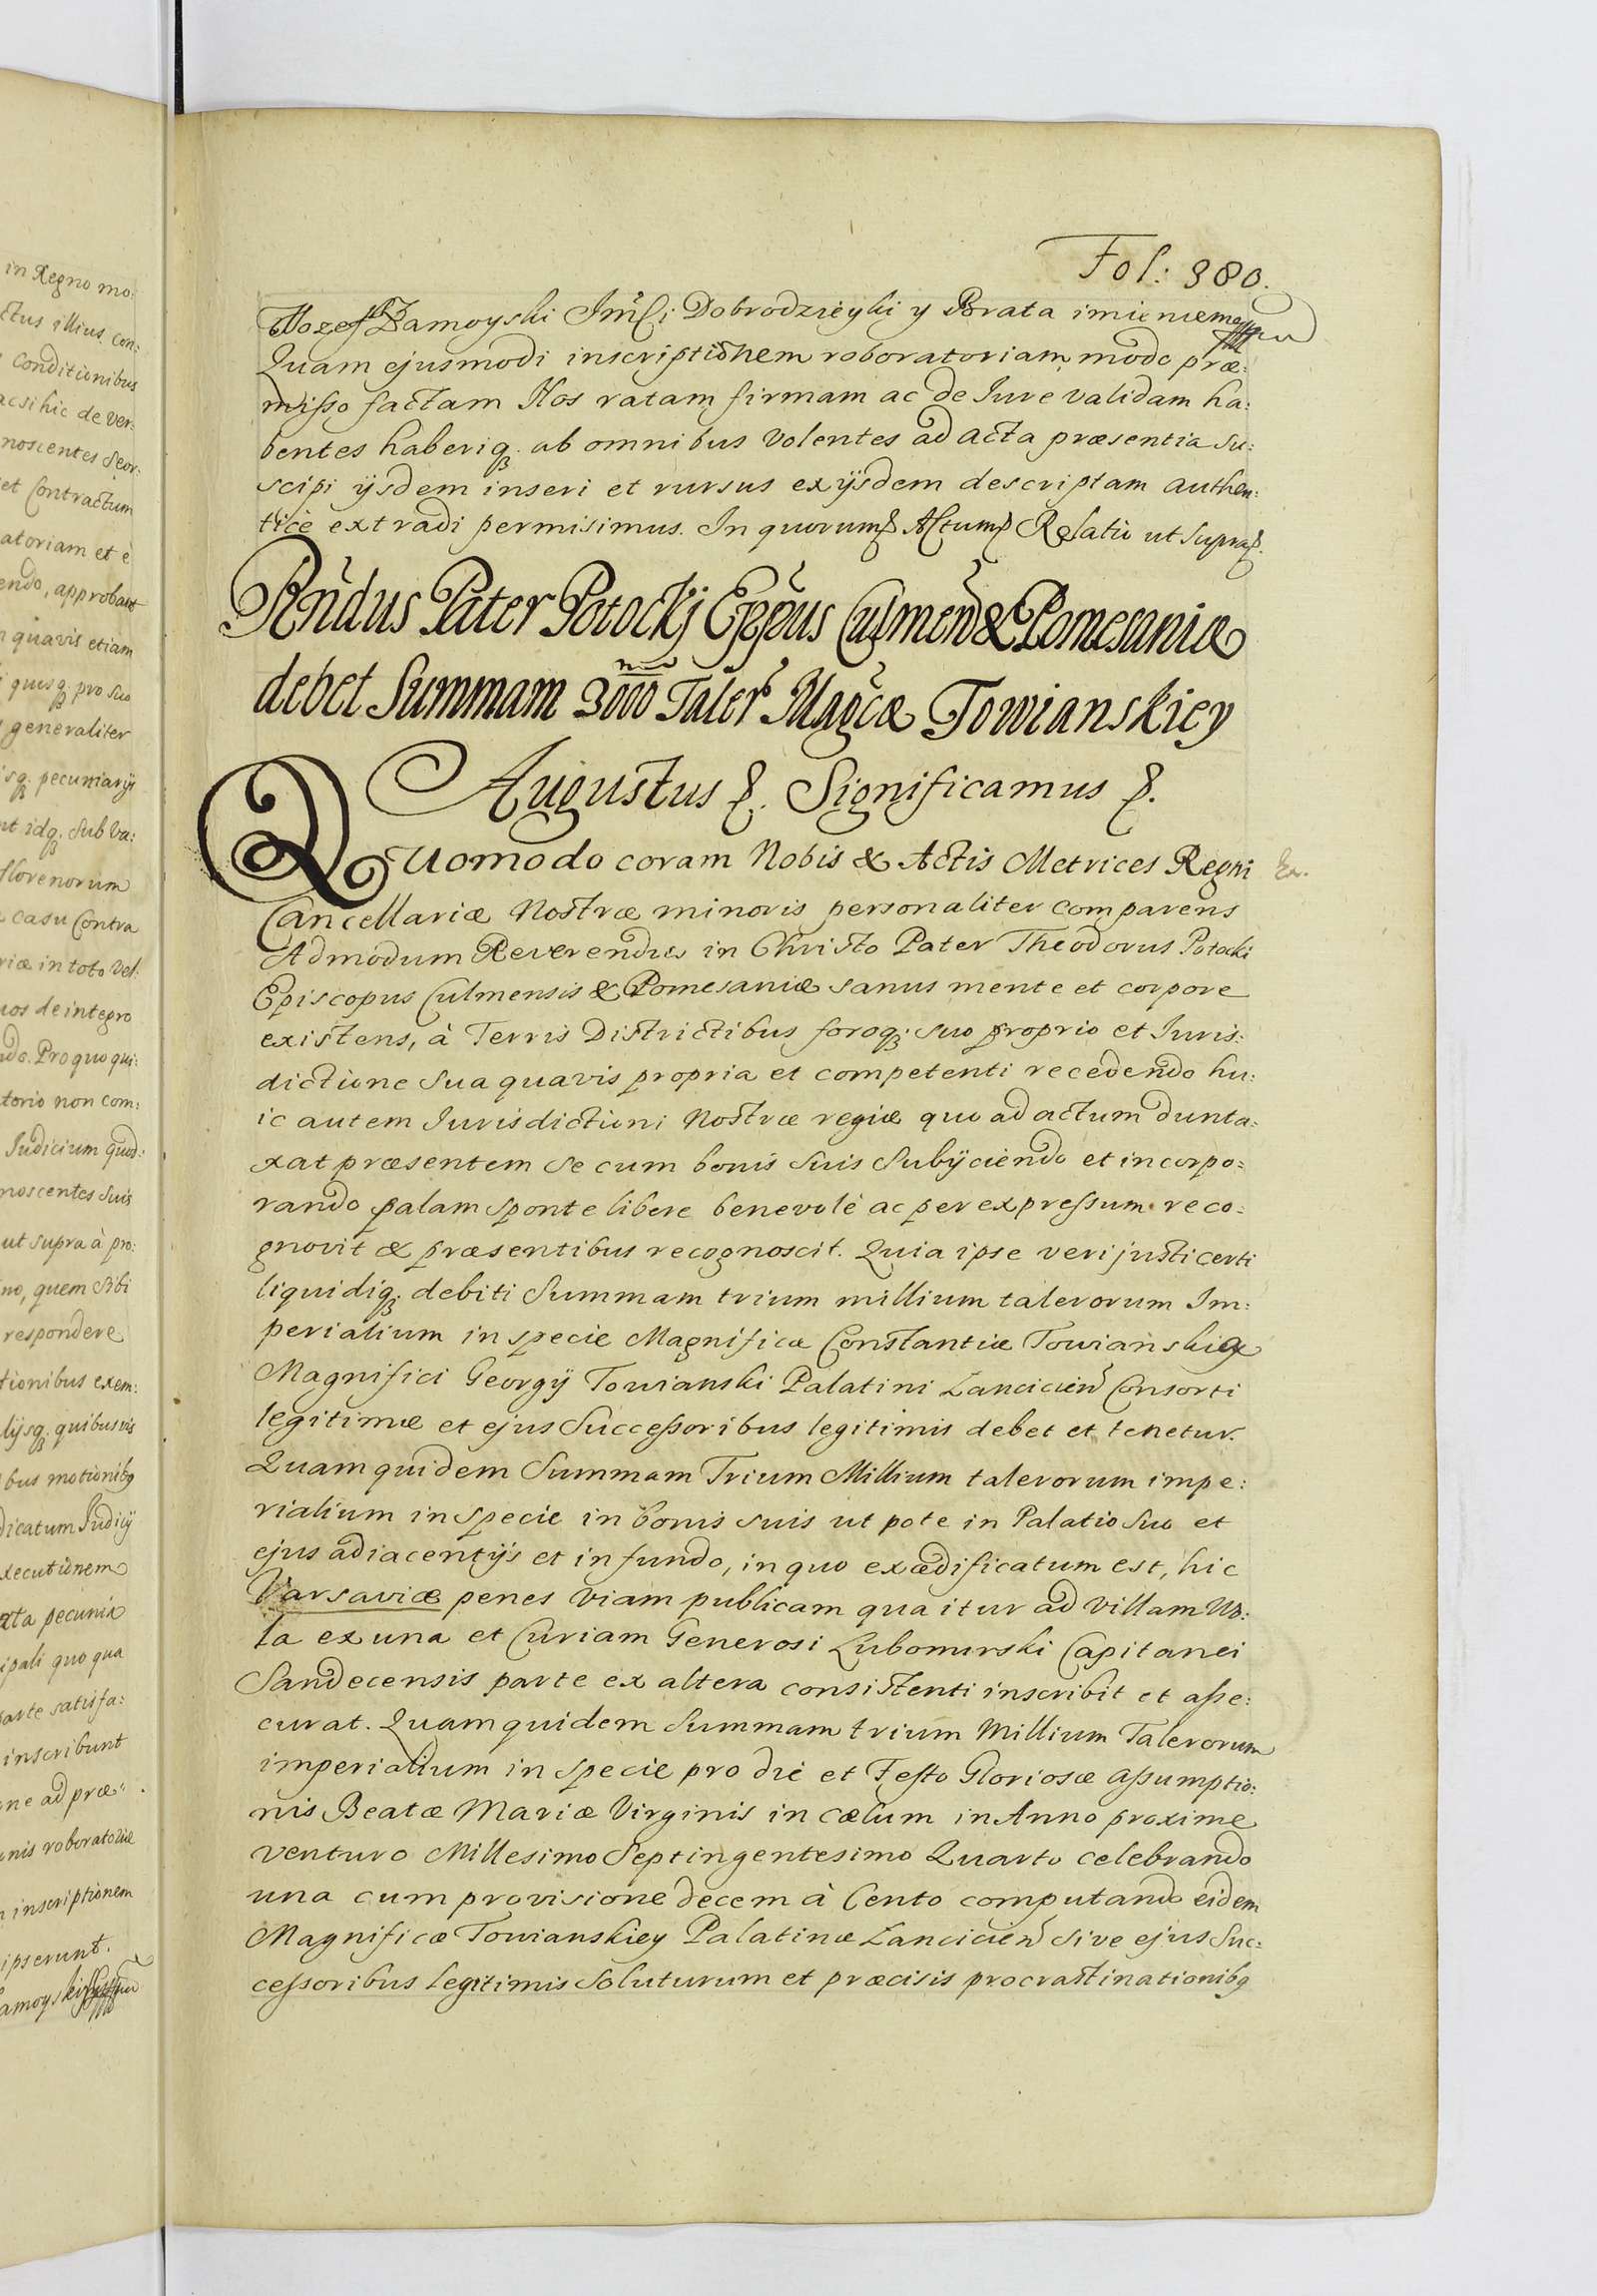 in Regno mo:
ctus illius con:
conditionibus
acsi hic de ver:
noscentes Seor:
et Contractum
atoriam et è
endo, approbant
quavis etiam
quisq3 pro suo
generaliter
isq3 pecuniarijs
nt idq3 sub va:
florenorum
casu Contra
riæ in toto vel:
uos de integro
ndo. Pro quo qui:
torio non com:
Judicium quod:
noscentes suis
ut supra à pro:
no, quem sibi
respondere
tionibus exem:
lijsq3 quibusvis
bus motionibq
dicatum Judicij
xecutionem
ata pecunia
ipali quo qua
parte satisfa:
inscribunt
ne ad præ"
onis roboratoriæ
inscriptionem
ipserunt.
amoyski
Fol: 380.
Jozef Zamoyski Jmści Dobrodzieyki y Brata imieniem
Quam ejusmodi inscriptionem roboratoriam modo præ:
misso factam Nos ratam firmam ac de Iure validam ha:
bentes haberiq3 ab omnibus volentes ad acta præsentia su:
scipi ijsdem inseri et rursus ex ijsdem descriptam authen:
ticè extradi permisimus. In quorum & Actum & Relatio ut supra &.
Rńdus Pater Potockj Eppus Culmeń & Pomesaniæ
debet Summam 3000 Taler Magcæ Towianskiey
Augustus &. Significamus &.
Quomodo coram Nobis & Actis Metrices Regni
Cancellariæ Nostræ minoris personaliter comparens
Admodum Reverendus in Christo Pater Theodorus Potocki
Episcopus Culmensis & Pomesaniæ sanus mente et corpore
existens, à Terris Districtibus foroq3 suo proprio et Iuris:
dictione sua quavis propria et competenti recedendo hu:
ic autem Iurisdictioni Nostræ regiæ quo ad actum dunta:
xat præsentem se cum bonis suis subijciendo et incorpo:
rando palam sponte libere benevolè ac per expressum reco:
gnovit & præsentibus recognoscit. Quia ipse veri justi certi
liquidiq3 debiti Summam trium millium talerorum Im:
perialium in specie Magnificæ Constantiæ Towianskiey
Magnifici Georgij Towianski Palatini Lancicień Consorti
legitimæ et ejus Successoribus legitimis debet et tenetur.
Quam quidem Summam Trium Millium talerorum impe:
rialium in specie in bonis suis ut pote in Palatio suo et
ejus adiacentijs et in fundo, in quo exædificatum est, hic
Varsaviæ penes viam publicam qua itur ad villam Wo:
la ex una et Curiam Generosi Lubomirski Capitanei
Sandecensis parte ex altera consistenti inscribit et asse:
curat. Quam quidem Summam trium Millium Talerorum
imperialium in specie pro die et Festo Gloriosæ assumptio:
nis Beatæ Mariæ Virginis in cælum in Anno proxime
venturo Millesimo Septingentesimo Quarto celebrando
una cum provisione decem à Cento computando eidem
Magnificæ Towianskiey Palatinæ Lancicień sive ejus Suc:
cessoribus legitimis soluturum et præcisis procrastinationibq